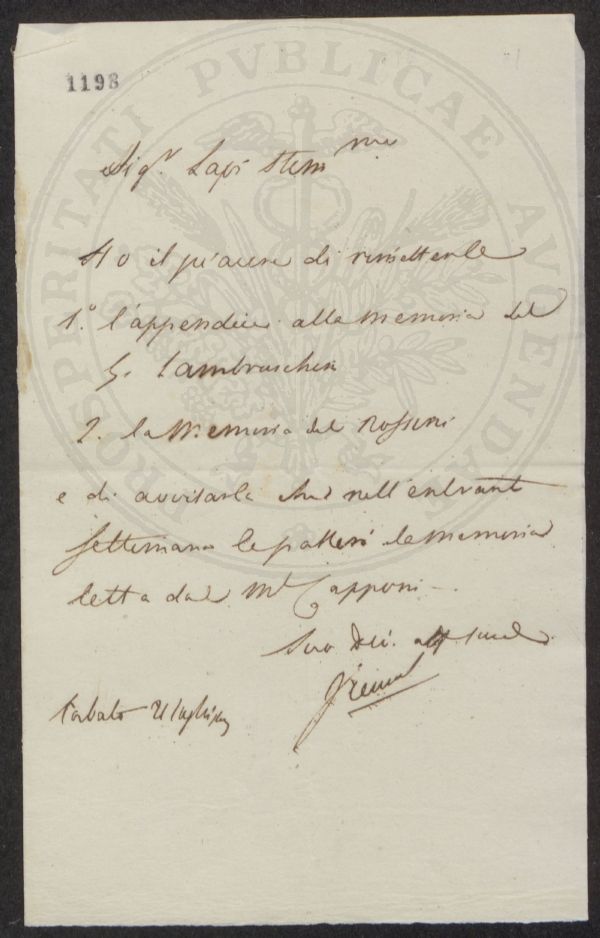 1198
PROSPERITATI PVBLICAE AVGENDAE
Sig.r Lapi Stim.mo
Ho il piacere di rimetterle
1.o l'appendice alla memoria del
S. Lambruschini
2. la Memoria del Rossini
e di avvisarla che nell'entrant
settimana le passerò la memoria
letta dal M.e Capponi
Suo Dev.
Sabato 21 luglio